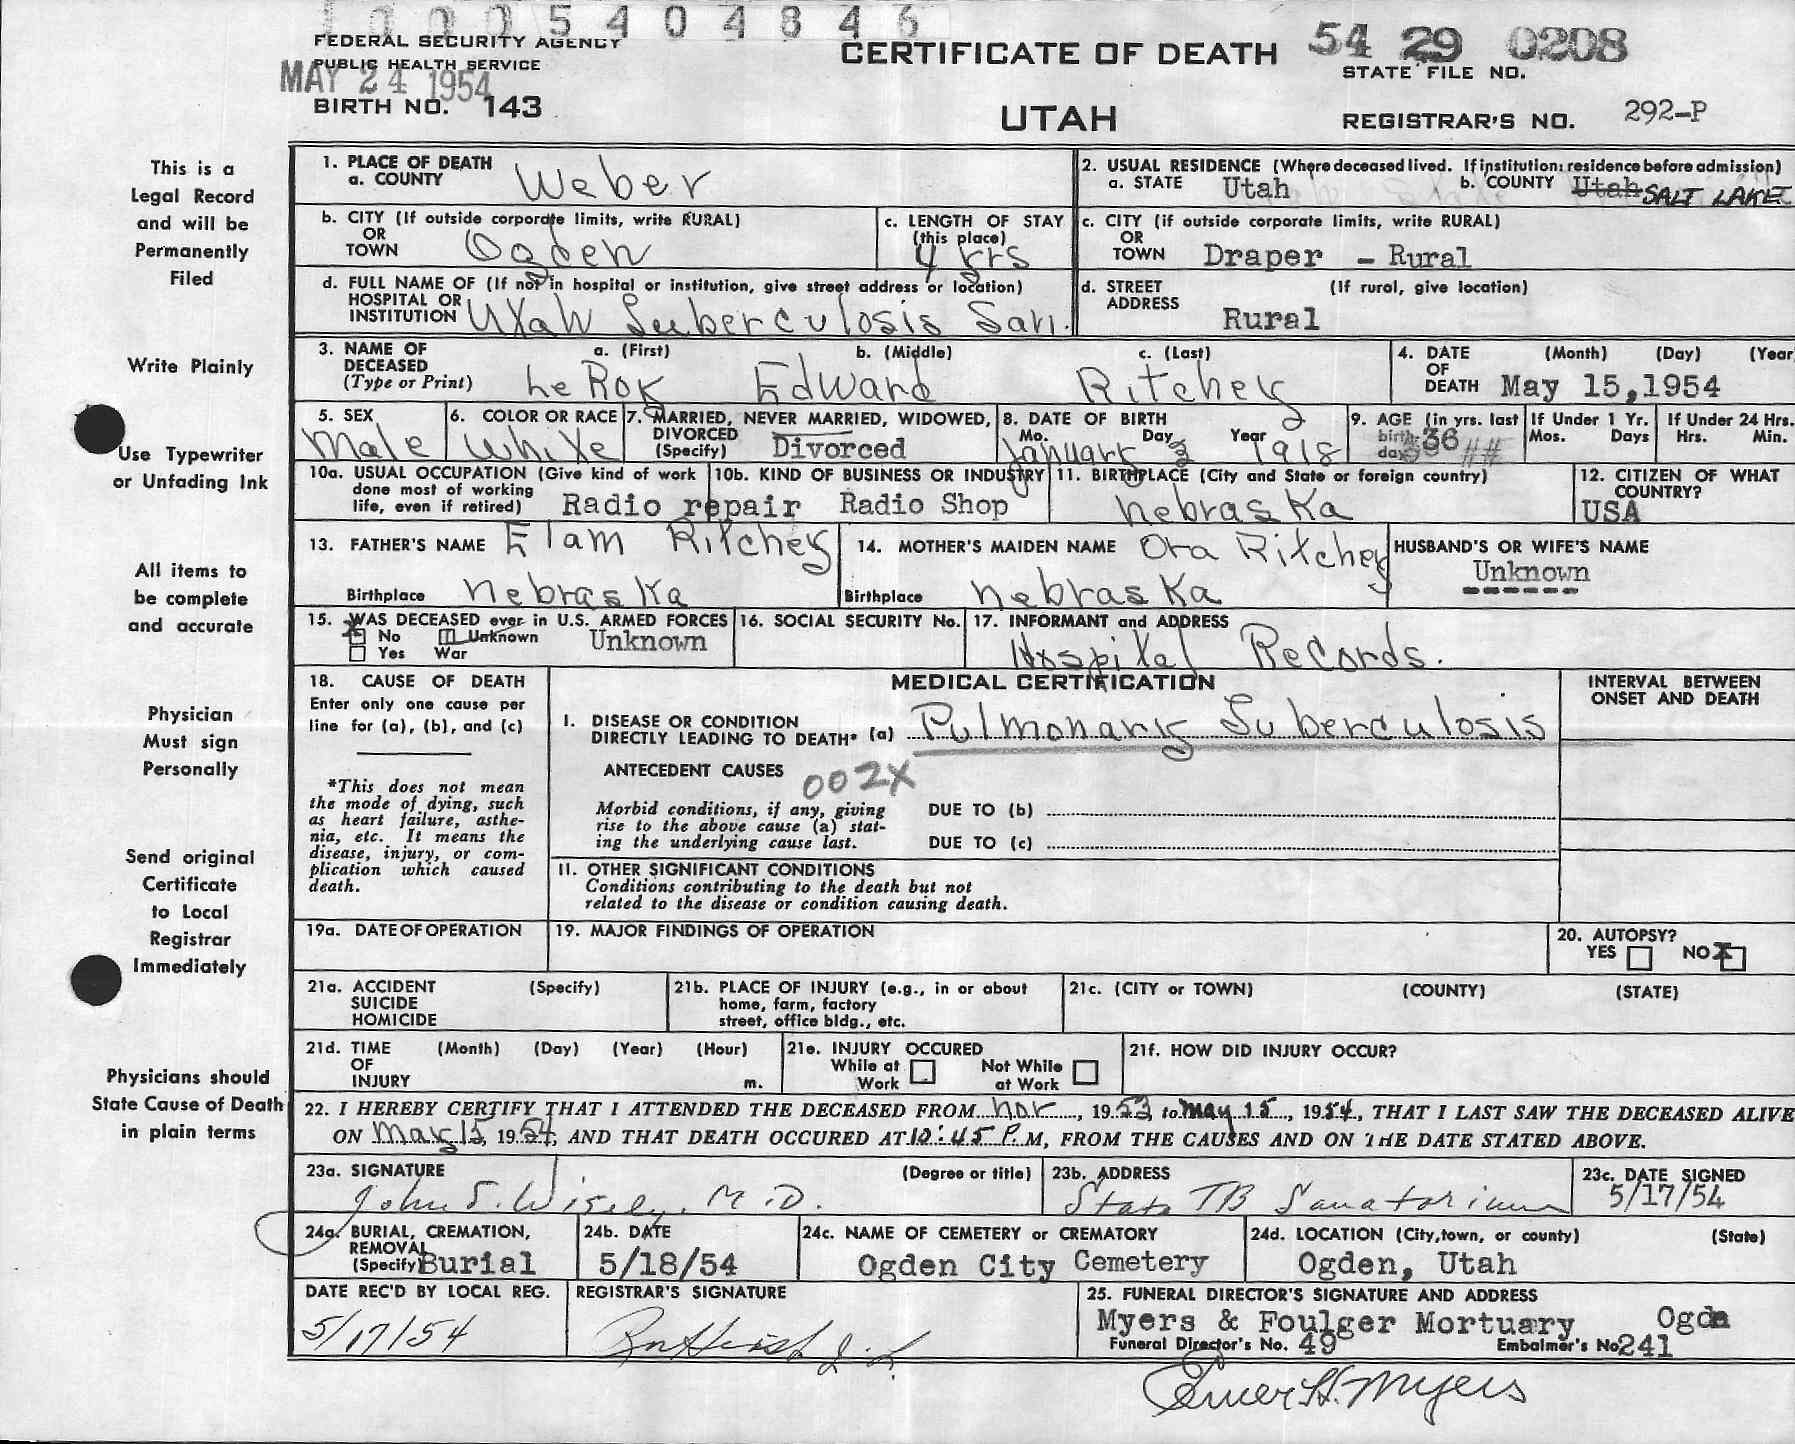 10005404846
FEDERAL SECURITY AGENCY
PUBLIC HEALTH SERVICE
MAY 24 1954
BIRTH NO. 143
CERTIFICATE OF DEATH
UTAH
54 29 0208
STATE FILE NO.
REGISTRAR'S NO. 292-P
This is a
Legal Record
and will be
Permanently
Filed
Write Plainly
Use Typewriter
or Unfading Ink
All items to
be complete
and accurate
Physician
Must sign
Personally
Send original
Certificate
to Local
Registrar
Immediately
Physicians should
State Cause of Death
in plain terms
1. PLACE OF DEATH
a. COUNTY Weber
2. USUAL RESIDENCE (Where deceased lived. If institution: residence before admission)
a. STATE Utah b. COUNTY Utah SALT LAKE
b. CITY (If outside corporate limits, write RURAL)
OR
TOWN Ogden
c. LENGTH OF STAY
(this place)
4 yrs
c. CITY (if outside corporate limits, write RURAL)
OR
TOWN Draper - Rural
d. FULL NAME OF (If not in hospital or institution, give street address or location)
HOSPITAL OR
INSTITUTION Utah Tuberculosis San.
d. STREET (If rural, give location)
ADDRESS
Rural
3. NAME OF a. (First) b. (Middle) c. (Last)
DECEASED
(Type or Print) LeRoy Edward Ritchey
4. DATE (Month) (Day) (Year
OF
DEATH May 15, 1954
5. SEX
Male
6. COLOR OR RACE
White
7. MARRIED, NEVER MARRIED, WIDOWED,
DIVORCED
(Specify) Divorced
8. DATE OF BIRTH
Mo. Day Year
January 3 1918
9. AGE (in yrs. last
birth-
day) 36 ##
If Under 1 Yr.
Mos. Days
If Under 24 Hrs.
Hrs. Min.
10a. USUAL OCCUPATION (Give kind of work
done most of working
life, even if retired) Radio repair
10b. KIND OF BUSINESS OR INDUSTRY
Radio Shop
11. BIRTHPLACE (City and State or foreign country)
Nebraska
12. CITIZEN OF WHAT
COUNTRY?
USA
13. FATHER'S NAME Elam Ritchey
Birthplace Nebraska
14. MOTHER'S MAIDEN NAME Ora Ritchey
Birthplace Nebraska
HUSBAND'S OR WIFE'S NAME
Unknown
15. WAS DECEASED ever in U.S. ARMED FORCES
X No Unknown Unknown
Yes War
16. SOCIAL SECURITY No.
17. INFORMANT and ADDRESS
Hospital Records.
18. CAUSE OF DEATH
Enter only one cause per
line for (a), (b), and (c)
*This does not mean
the mode of dying, such
as heart failure, asthe-
nia, etc. It means the
disease, injury, or com-
plication which caused
death.
MEDICAL CERTIFICATION
INTERVAL BETWEEN
ONSET AND DEATH
I. DISEASE OR CONDITION
DIRECTLY LEADING TO DEATH* (a) Pulmonary Tuberculosis
ANTECEDENT CAUSES 002X
Morbid conditions, if any, giving
rise to the above cause (a) stat-
ing the underlying cause last.
DUE TO (b)
DUE TO (c)
II. OTHER SIGNIFICANT CONDITIONS
Conditions contributing to the death but not
related to the disease or condition causing death.
19a. DATE OF OPERATION
19. MAJOR FINDINGS OF OPERATION
20. AUTOPSY?
YES NO X
21a. ACCIDENT (Specify)
SUICIDE
HOMICIDE
21b. PLACE OF INJURY (e.g., in or about
home, farm, factory
street, office bldg., etc.
21c. (CITY or TOWN) (COUNTY) (STATE)
21d. TIME (Month) (Day) (Year) (Hour)
OF
INJURY m.
21e. INJURY OCCURED
While at Not While
Work at Work
21f. HOW DID INJURY OCCUR?
22. I HEREBY CERTIFY THAT I ATTENDED THE DECEASED FROM Nov , 1953 to May 15, 1954, THAT I LAST SAW THE DECEASED ALIVE
ON May 15, 1954, AND THAT DEATH OCCURED AT 12:45 P. M, FROM THE CAUSES AND ON THE DATE STATED ABOVE.
23a. SIGNATURE (Degree or title)
John S. Wisely, M.D.
23b. ADDRESS
State TB Sanatorium
23c. DATE SIGNED
5/17/54
24a. BURIAL, CREMATION,
REMOVAL
(Specify) Burial
24b. DATE
5/18/54
24c. NAME OF CEMETERY or CREMATORY
Ogden City Cemetery
24d. LOCATION (City, town, or county) (State)
Ogden, Utah
DATE REC'D BY LOCAL REG.
5/17/54
REGISTRAR'S SIGNATURE
25. FUNERAL DIRECTOR'S SIGNATURE AND ADDRESS
Myers & Foulger Mortuary
Funeral Director's No. 49 Embalmer's No 241
Elmer H. Myers